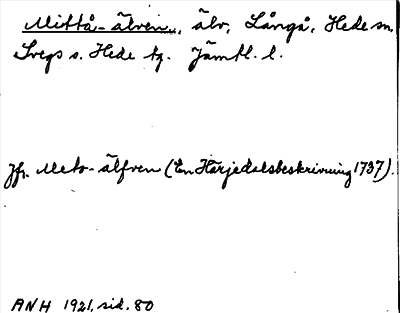 Mittå-älven, älv, Långå, Hede sn.
Svegs o. Hede tg. Jämtl. l.
Jfr. Meto-älfven (En Härjedalsbeskrivning 1737).
ANH 1921, sid. 80